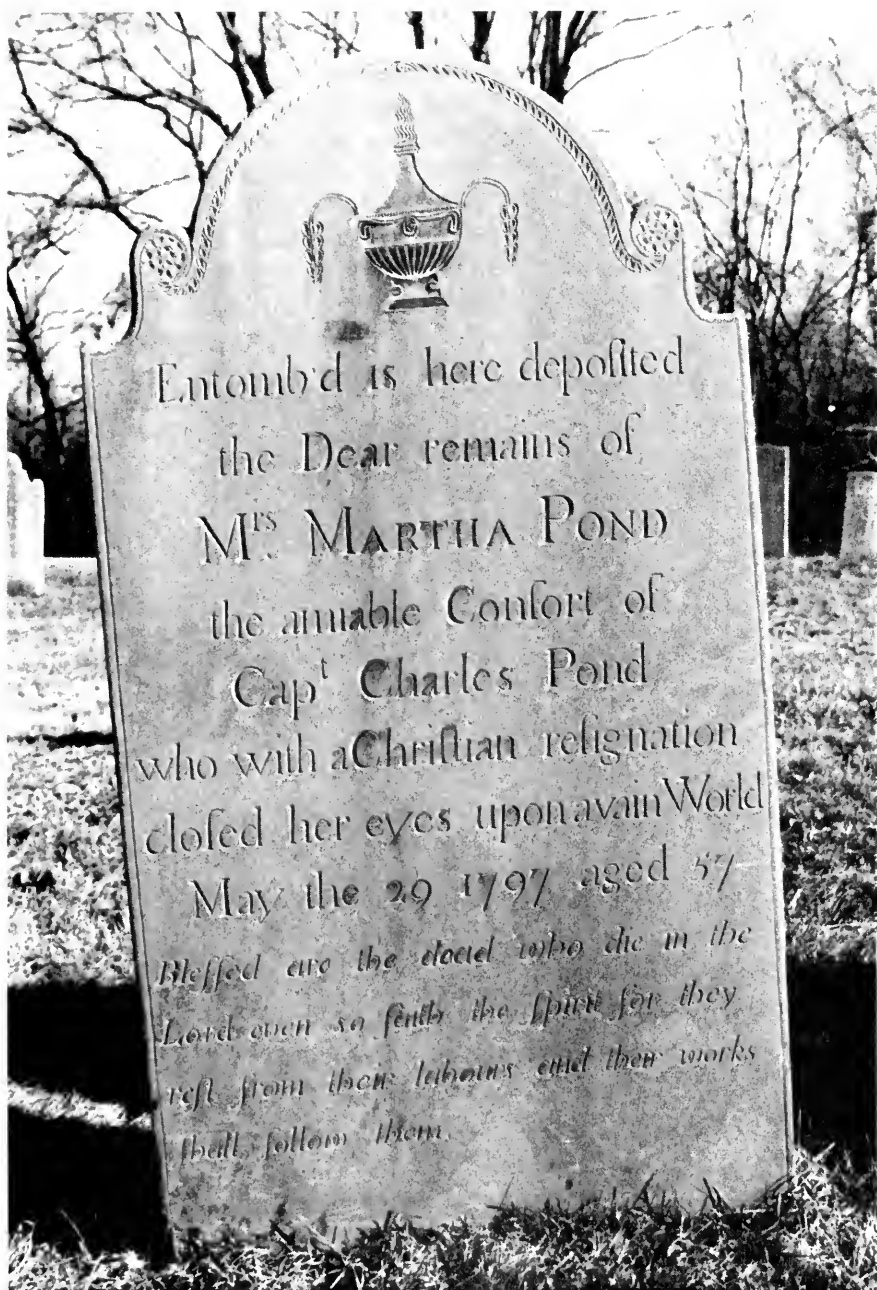 Entomb'd is here depoſited
the Dear remains of
Mrs. MARTHA POND
the amiable Conſort of
Capt Charles Pond
who with a Chriſtian reſignation
cloſed her eyes upon a vain World
May the 29 1797 aged 57
Bleſſed are the dead who die in the
Lord even so ſaith the ſpirit for they
reſt from their labours and their works
ſhall follow them.